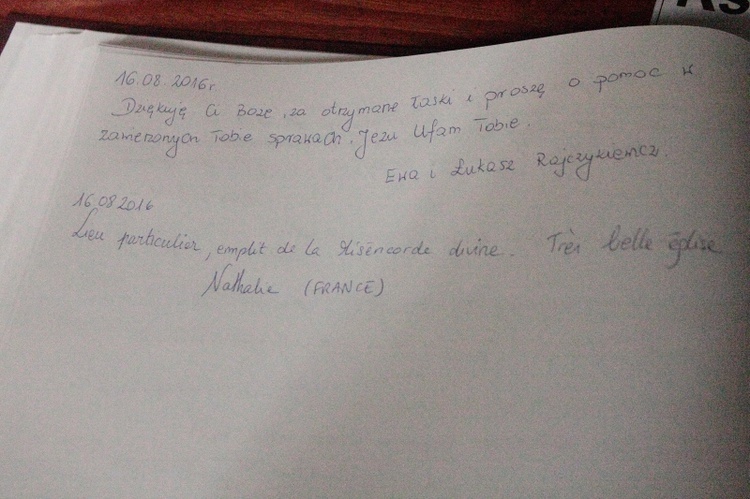 16.08.2016r
Dziękuję Ci Boże, za otrzymane łaski i proszę o pomoc w
zawierzonych Tobie sprawach. Jezu Ufam Tobie.
Ewa i Łukasz
16.08 2016
Lieu particulier, emplit de la Miséricorde divine. Très belle église
Nathalie (FRANCE)